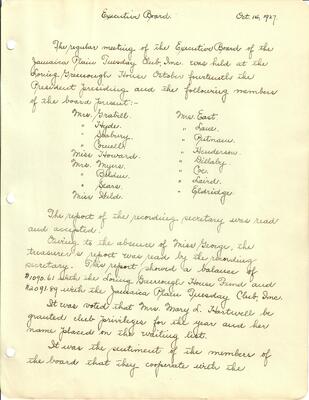 Executive Board. Oct. 14, 1927.
The regular meeting of the Executive Board of the
Jamaica Plain Tuesday Club, Inc. was held at the
Loring Greenough House October fourteenth the
President presiding and the following members
of the board present:-
Mrs. Mrs. East.
" Hyde. "
" "  Putnam.
" Cowell. " Henderson.
Miss Howard. "
Mrs. Myers. " Coe.
" " Laird.
" Sears. " Eldridge.
Miss
The report of the recording secretary was read
and accepted.
Owing to the absence of Miss George, the
treasurer's report was read by the recording
secretary. This report showed a balance of
$1090.61 with the Loring Greenough House Fund and
$2091.89 with the Jamaica Plain Tuesday Club, Inc.
It was voted that Mrs. Mary L. Hartwell be
granted club privileges for the year and her
name placed on the waiting list.
It was the sentiment of the members of
the board that they cooperate with the